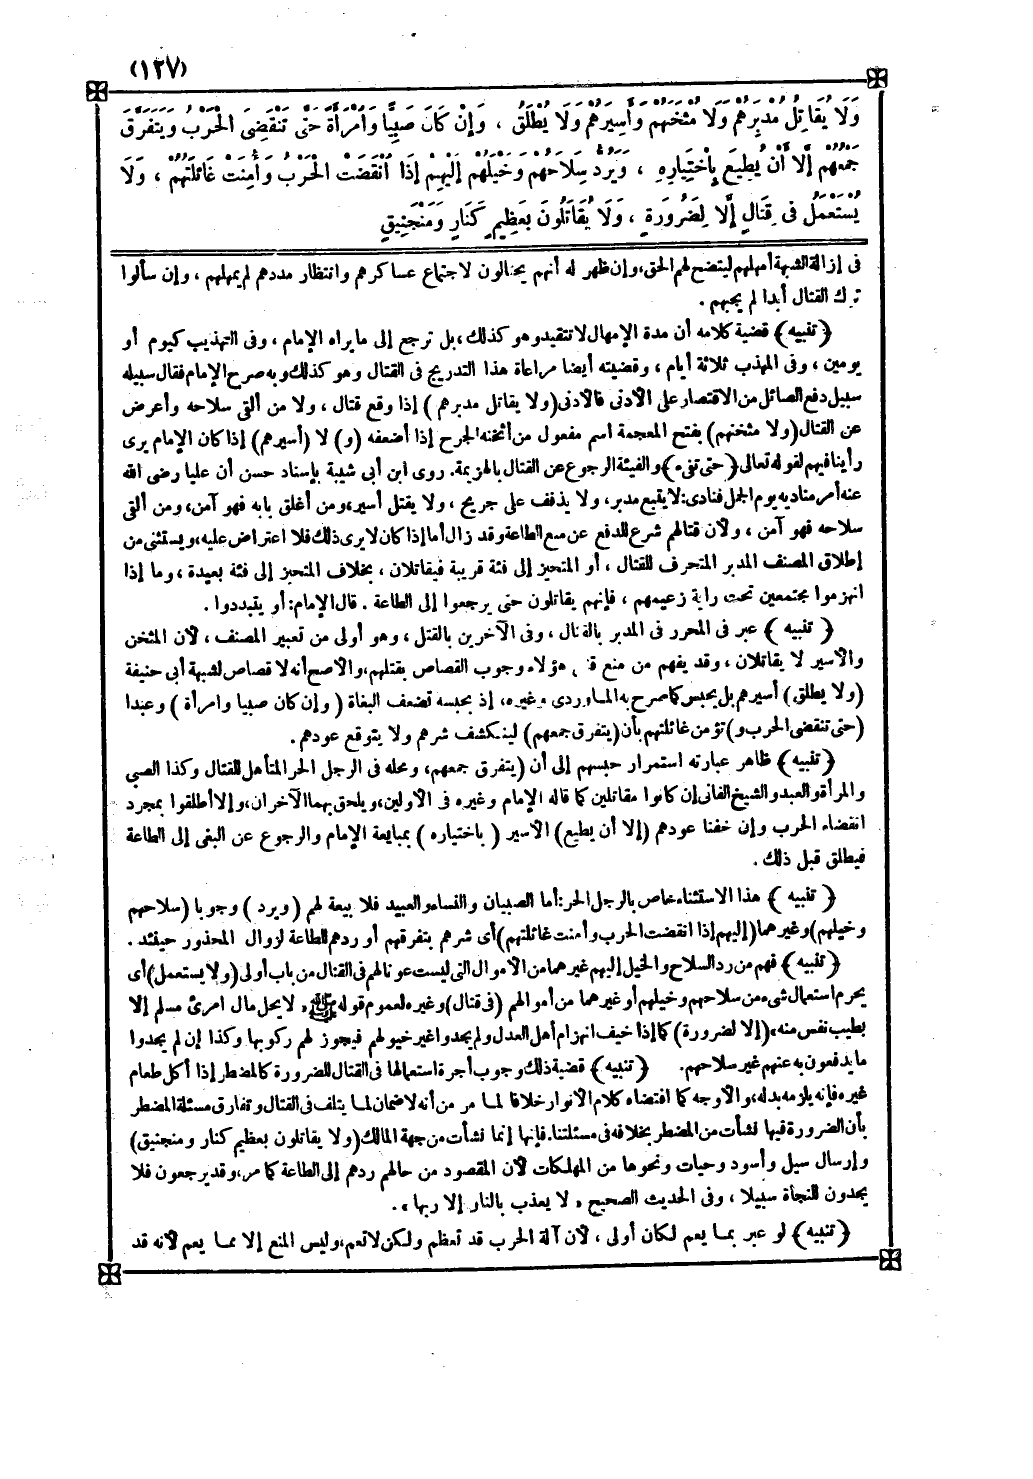 (١٢٧)
وَلَا يُقَاتِلُ مُدْبِرَهُمْ وَلَا مُثْخَنَهُمْ وَأَسِيرَهُمْ وَلَا يُطْلَقُ ، وَإِنْ كَانَ صَبِيًّا وَامْرَأَةً حَتَّى تَنْقَضِيَ الْحَرْبُ وَيَتَفَرَّقَ
جَمْعُهُمْ إِلَّا أَنْ يُطِيعَ بِاخْتِيَارِهِ ، وَيَرُدُّ سِلَاحَهُمْ وَخَيْلَهُمْ إِلَيْهِمْ إِذَا انْقَضَتْ الْحَرْبُ وَأُمِنَتْ غَائِلَتُهُمْ ، وَلَا
يُسْتَعْمَلُ فِي قِتَالٍ إِلَّا لِضَرُورَةٍ ، وَلَا يُقَاتَلُونَ بِعَظِيمٍ كَنَارٍ وَمَنْجَنِيقٍ
فى إزالة الشبهة أمهلهم ليتضح لهم الحق، وإن ظهر له أنهم يحتالون لاجتماع عساكرهم وانتظار مددهم لم يمهلهم ، وإن سألوا
ترك القتال أبدا لم يجبهم .
﴿ تنبيه ﴾ قضية كلامه أن مدة الإمهال لا تتقيد وهو كذلك، بل ترجع إلى ما يراه الإمام ، وفى التهذيب كيوم أو
يومين ، وفى المهذب ثلاثة أيام ، وقضيته أيضا مراعاة هذا التدريج فى القتال وهو كذلك وبه صرح الإمام فقال سبيله
سبيل دفع الصائل من الاقتصار على الأدنى فالأدنى (ولا يقاتل مدبرهم ) إذا وقع قتال ، ولا من ألقى سلاحه وأعرض
عن القتال (ولا مثخنهم) بفتح المعجمة اسم مفعول من أثخنه الجرح إذا أضعفه (و) لا (أسيرهم) إذا كان الإمام يرى
رأينا فيهم لقوله تعالى ﴿ حتى تفىء ﴾ والفيئة الرجوع عن القتال بالهزيمة. روى ابن أبى شيبة بإسناد حسن أن عليا رضى الله
عنه أمر مناديه يوم الجمل فنادى: لا يتبع مدبر، ولا يذفف على جريح ، ولا يقتل أسير، ومن أغلق بابه فهو آمن، ومن ألقى
سلاحه فهو آمن ، ولأن قتالهم شرع للدفع عن منع الطاعة وقد زال أما إذا كان لا يرى ذلك فلا اعتراض عليه، ويستثنى من
إطلاق المصنف المدبر المتحرف للقتال ، أو المتحيز إلى فئة قريبة فيقاتلان ، بخلاف المتحيز إلى فئة بعيدة ، وما إذا
انهزموا مجتمعين تحت راية زعيمهم ، فإنهم يقاتلون حتى يرجعوا إلى الطاعة . قال الإمام: أو يتبددوا .
﴿ تنبيه ﴾ عبر فى المحرر فى المدبر بالقتال ، وفى الآخرين بالقتل ، وهو أولى من تعبير المصنف ، لأن المثخن
والأسير لا يقاتلان ، وقد يفهم من منع هؤلاء وجوب القصاص بقتلهم، والأصح أنه لا قصاص لشبهة أبى حنيفة
(ولا يطلق) أسيرهم بل يحبس كما صرح به الماوردى وغيره، إذ بحبسه تضعف البغاة ( وإن كان صبيا وامرأة ) وعبدا
(حتى تنقضى الحرب و) تؤمن غائلتهم بأن (يتفرق جمعهم) لينكشف شرهم ولا يتوقع عودهم .
﴿ تنبيه ﴾ ظاهر عبارته استمرار حبسهم إلى أن (يتفرق جمعهم، ومحله فى الرجل الحر المتأهل للقتال وكذا الصبى
والمرأة والعبد والشيخ الفانى إن كانوا مقاتلين كما قاله الإمام وغيره فى الأولين، ويلحق بهما الآخران، وإلا أطلقوا بمجرد
انقضاء الحرب وإن خفنا عودهم (إلا أن يطيع) الأسير ( باختياره ) بمبايعة الإمام والرجوع عن البغى إلى الطاعة
فيطلق قبل ذلك .
﴿ تنبيه ﴾ هذا الاستثناء خاص بالرجل الحر: أما الصبيان والنساء والعبيد فلا بيعة لهم (ويرد) وجوبا (سلاحهم
وخيلهم) وغيرهما (إليهم إذا انقضت الحرب وأمنت غائلتهم) أى شرهم بتفرقهم أو ردهم للطاعة لزوال المحذور حينئذ .
﴿ تنبيه ﴾ فهم من رد السلاح والخيل إليهم غيرهما من الأموال التى ليست عونا لهم فى القتال من باب أولى (ولا يستعمل) أى
يحرم استعمال شىء من سلاحهم وخيلهم أو غيرهما من أموالهم (فى قتال) وغيره لعموم قوله ﷺ « لا يحل مال امرئ مسلم إلا
بطيب نفس منه» (إلا لضرورة) كما إذا خيف انهزام أهل العدل ولم يجدوا غير خيولهم فيجوز لهم ركوبها وكذا إن لم يجدوا
ما يدفعون به عنهم غير سلاحهم. ﴿ تنبيه ﴾ قضية ذلك وجوب أجرة استعمالها فى القتال للضرورة كالمضطر إذا أكل طعام
غيره فإنه يلزمه بدله، والأوجه كما اقتضاه كلام الأنوار خلافا لما مر من أنه لا ضمان لما يتلف فى القتال وتفارق مسئلة المضطر
بأن الضرورة فيها نشأت من المضطر بخلافه فى مسئلتنا. فإنها إنما نشأت من جهة المالك (ولا يقاتلون بعظيم كنار ومنجنيق)
وإرسال سيل وأسود وحيات ونحوها من المهلكات لأن المقصود من حالهم ردهم إلى الطاعة كما مر، وقد يرجعون فلا
يجدون للنجاة سبيلا ، وفى الحديث الصحيح « لا يعذب بالنار إلا ربها » .
﴿ تنبيه ﴾ لو عبر بما يعم لكان أولى ، لأن آلة الحرب قد تعظم ولكن لا تعم، وليس المنع إلا مما يعم لأنه قد